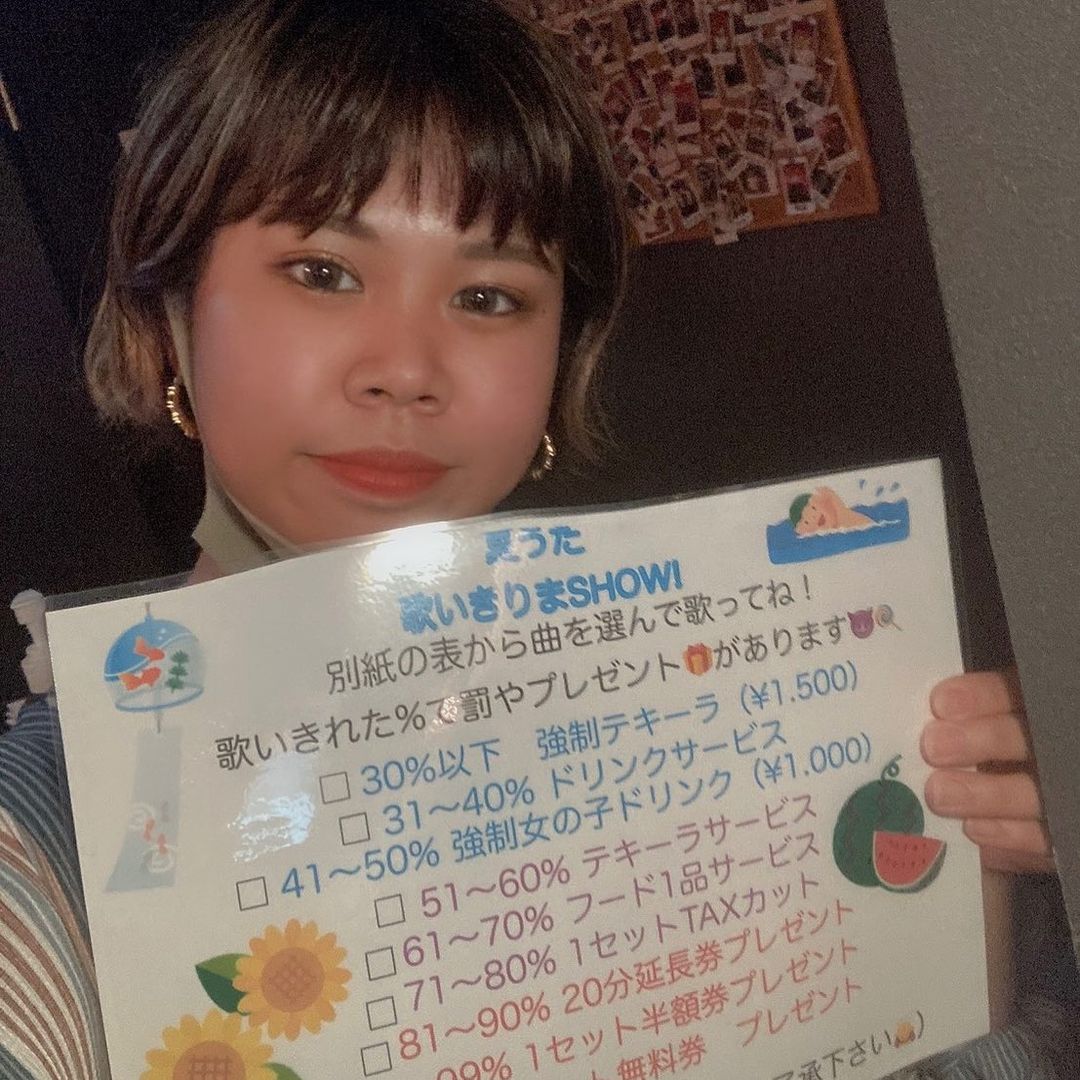 夏うた
歌いきりまSHOW!
別紙の表から曲を選んで歌ってね！
歌いきれた%で罰やプレゼント🎁があります😈🍭
□ 30%以下 強制テキーラ (¥1.500)
□ 31〜40% ドリンクサービス
□ 41〜50% 強制女の子ドリンク (¥1.000)
□ 51〜60% テキーラサービス
□ 61〜70% フード1品サービス
□ 71〜80% 1セットTAXカット
□ 81〜90% 20分延長券プレゼント
99% 1セット半額券プレゼント
ト無料券 プレゼント
了承下さい🙏)